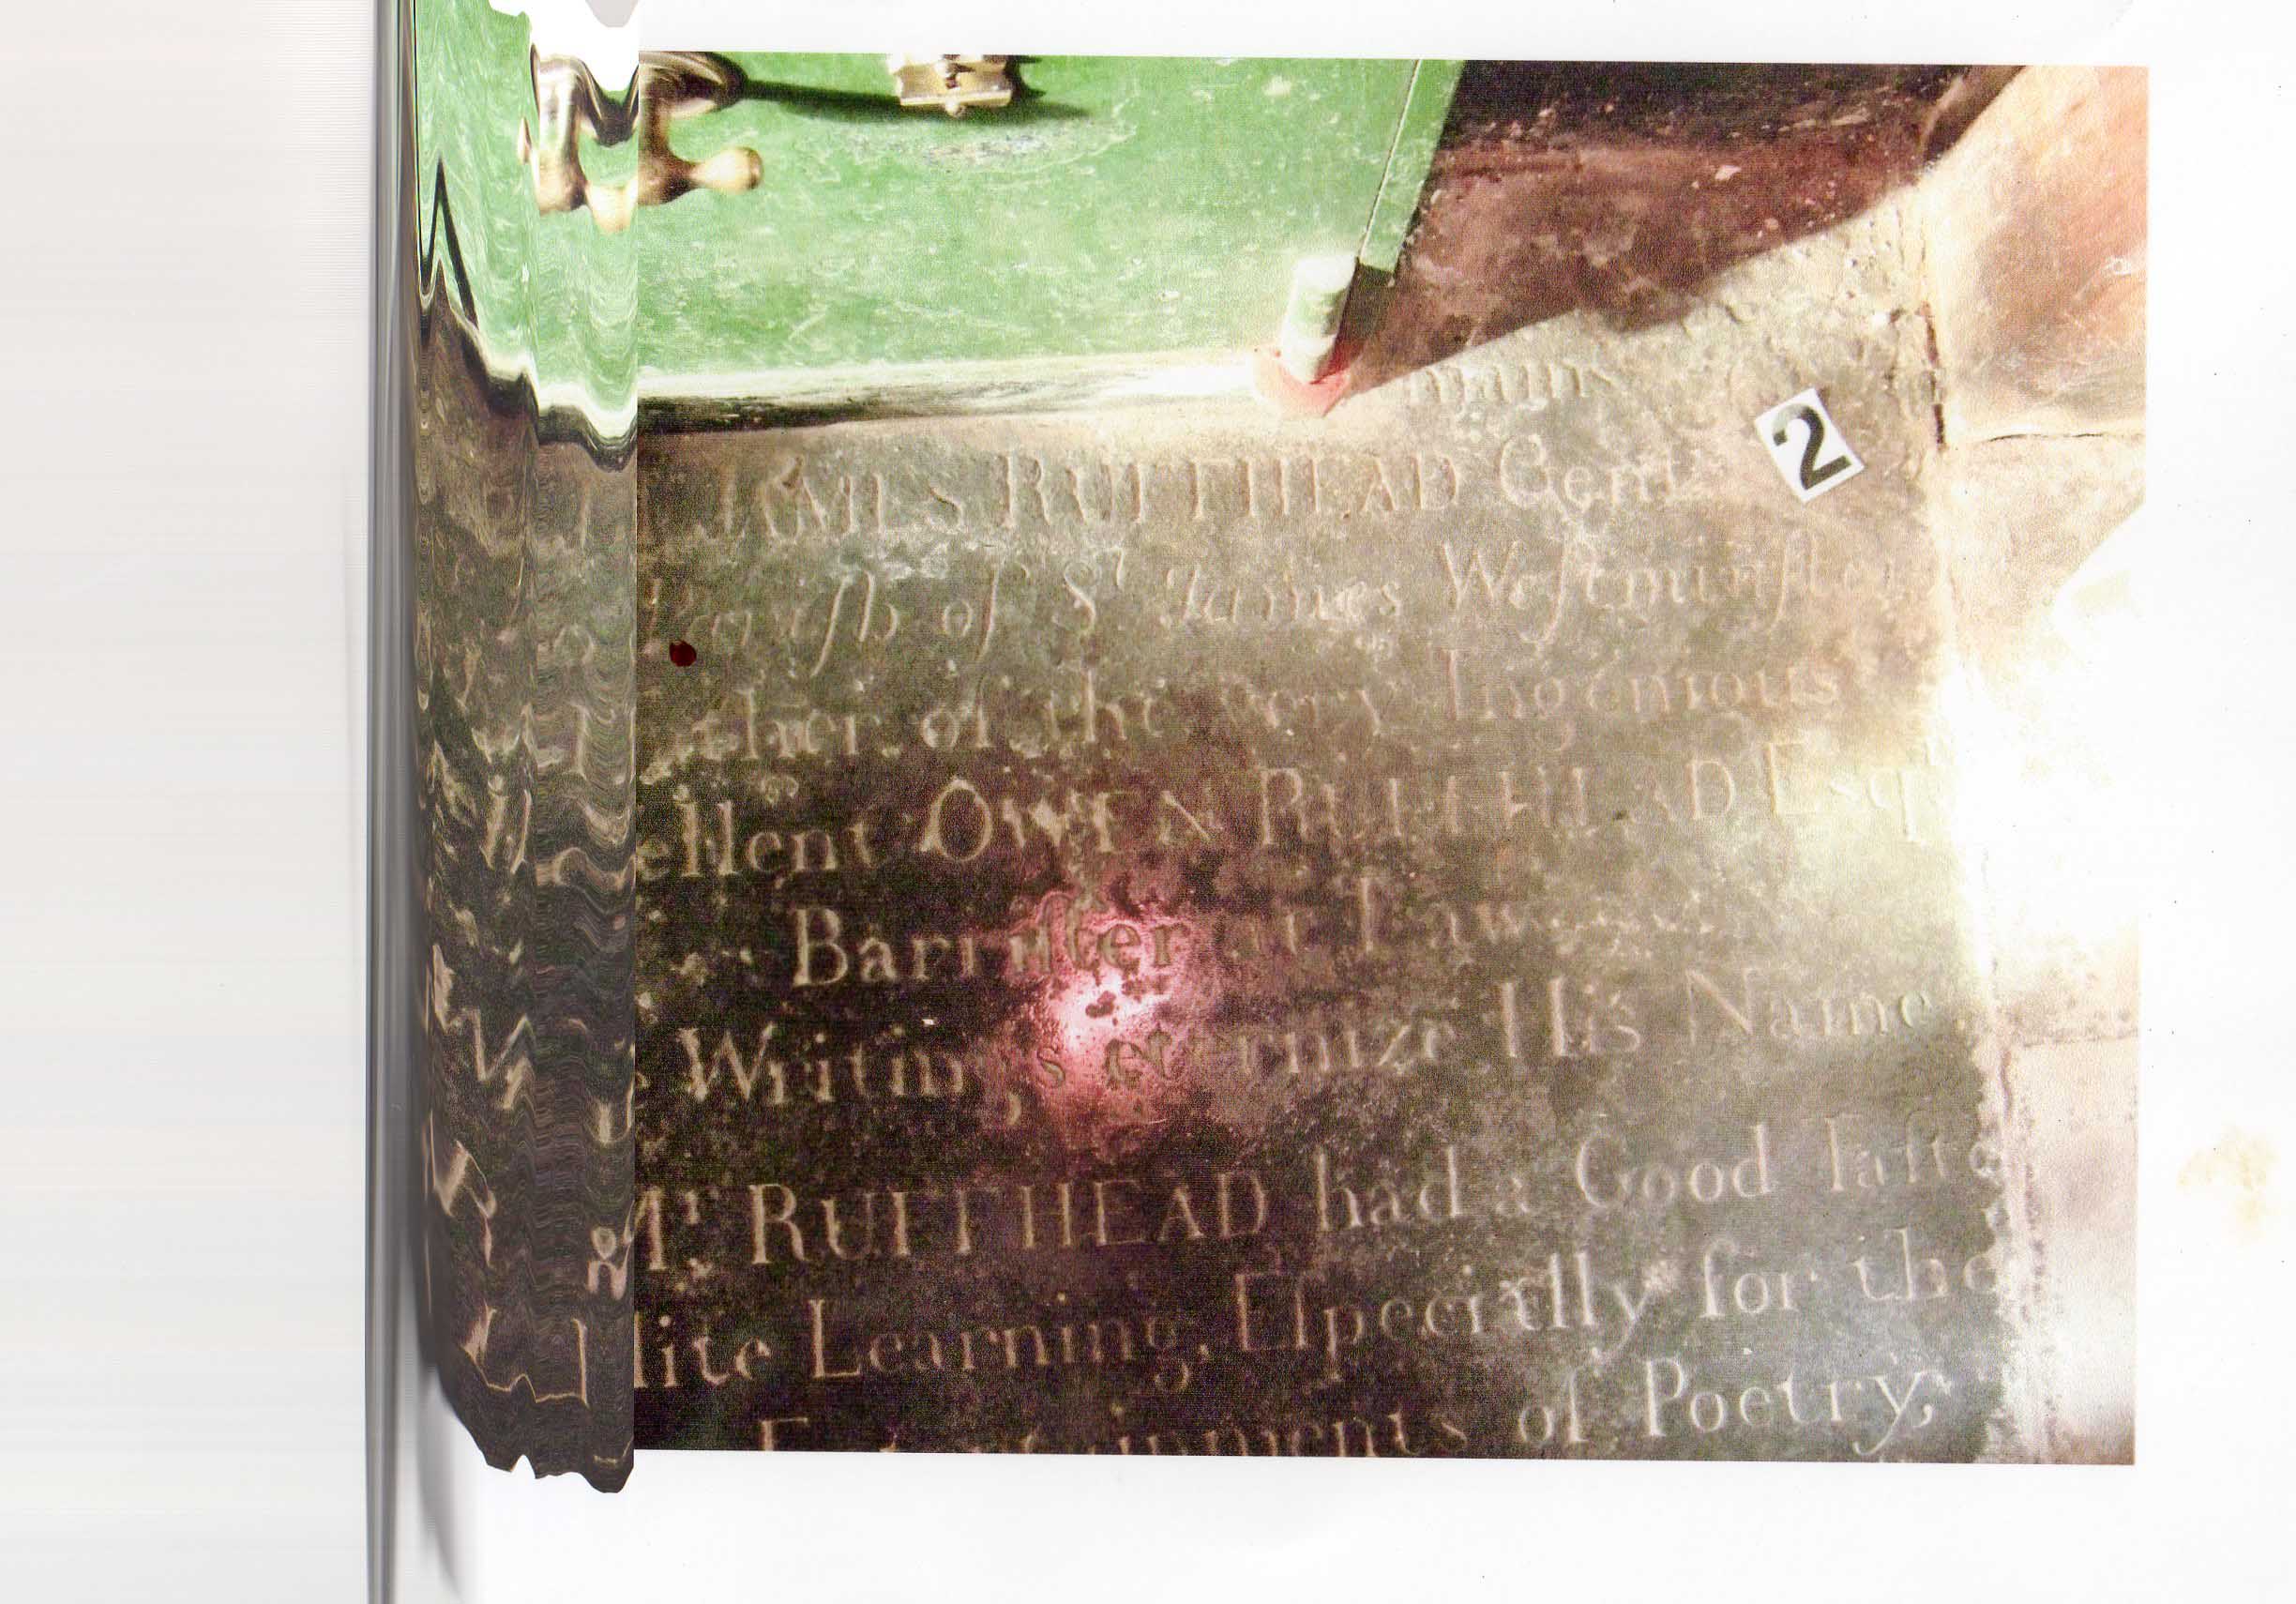 mains
2
JAMES RUFFHEAD Gent
Pariſh of St James Weſtminſter
ather of the very Ingenious
ellent OWEN RUFFHEAD Esqr
Barriſter at Law
s Writings eternize His Name.
Mr. RUFFHEAD had a Good Taſte
lite Learning, Eſpecially for the
of Poetry,